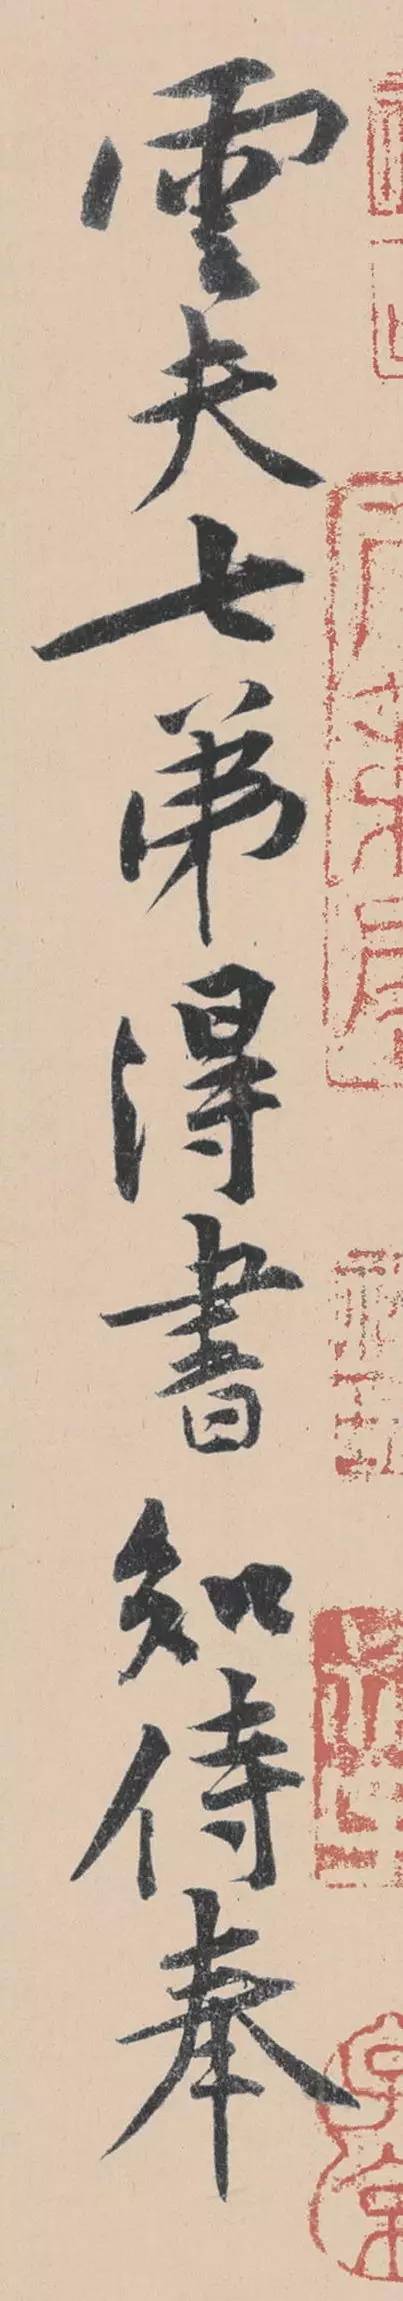 雲夫七弟得書知侍奉